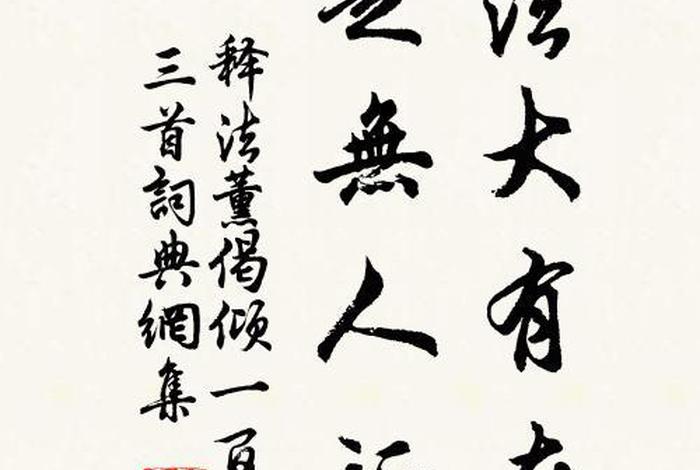 法大有
無人
释法薰偈倾一百
三首詞典網集